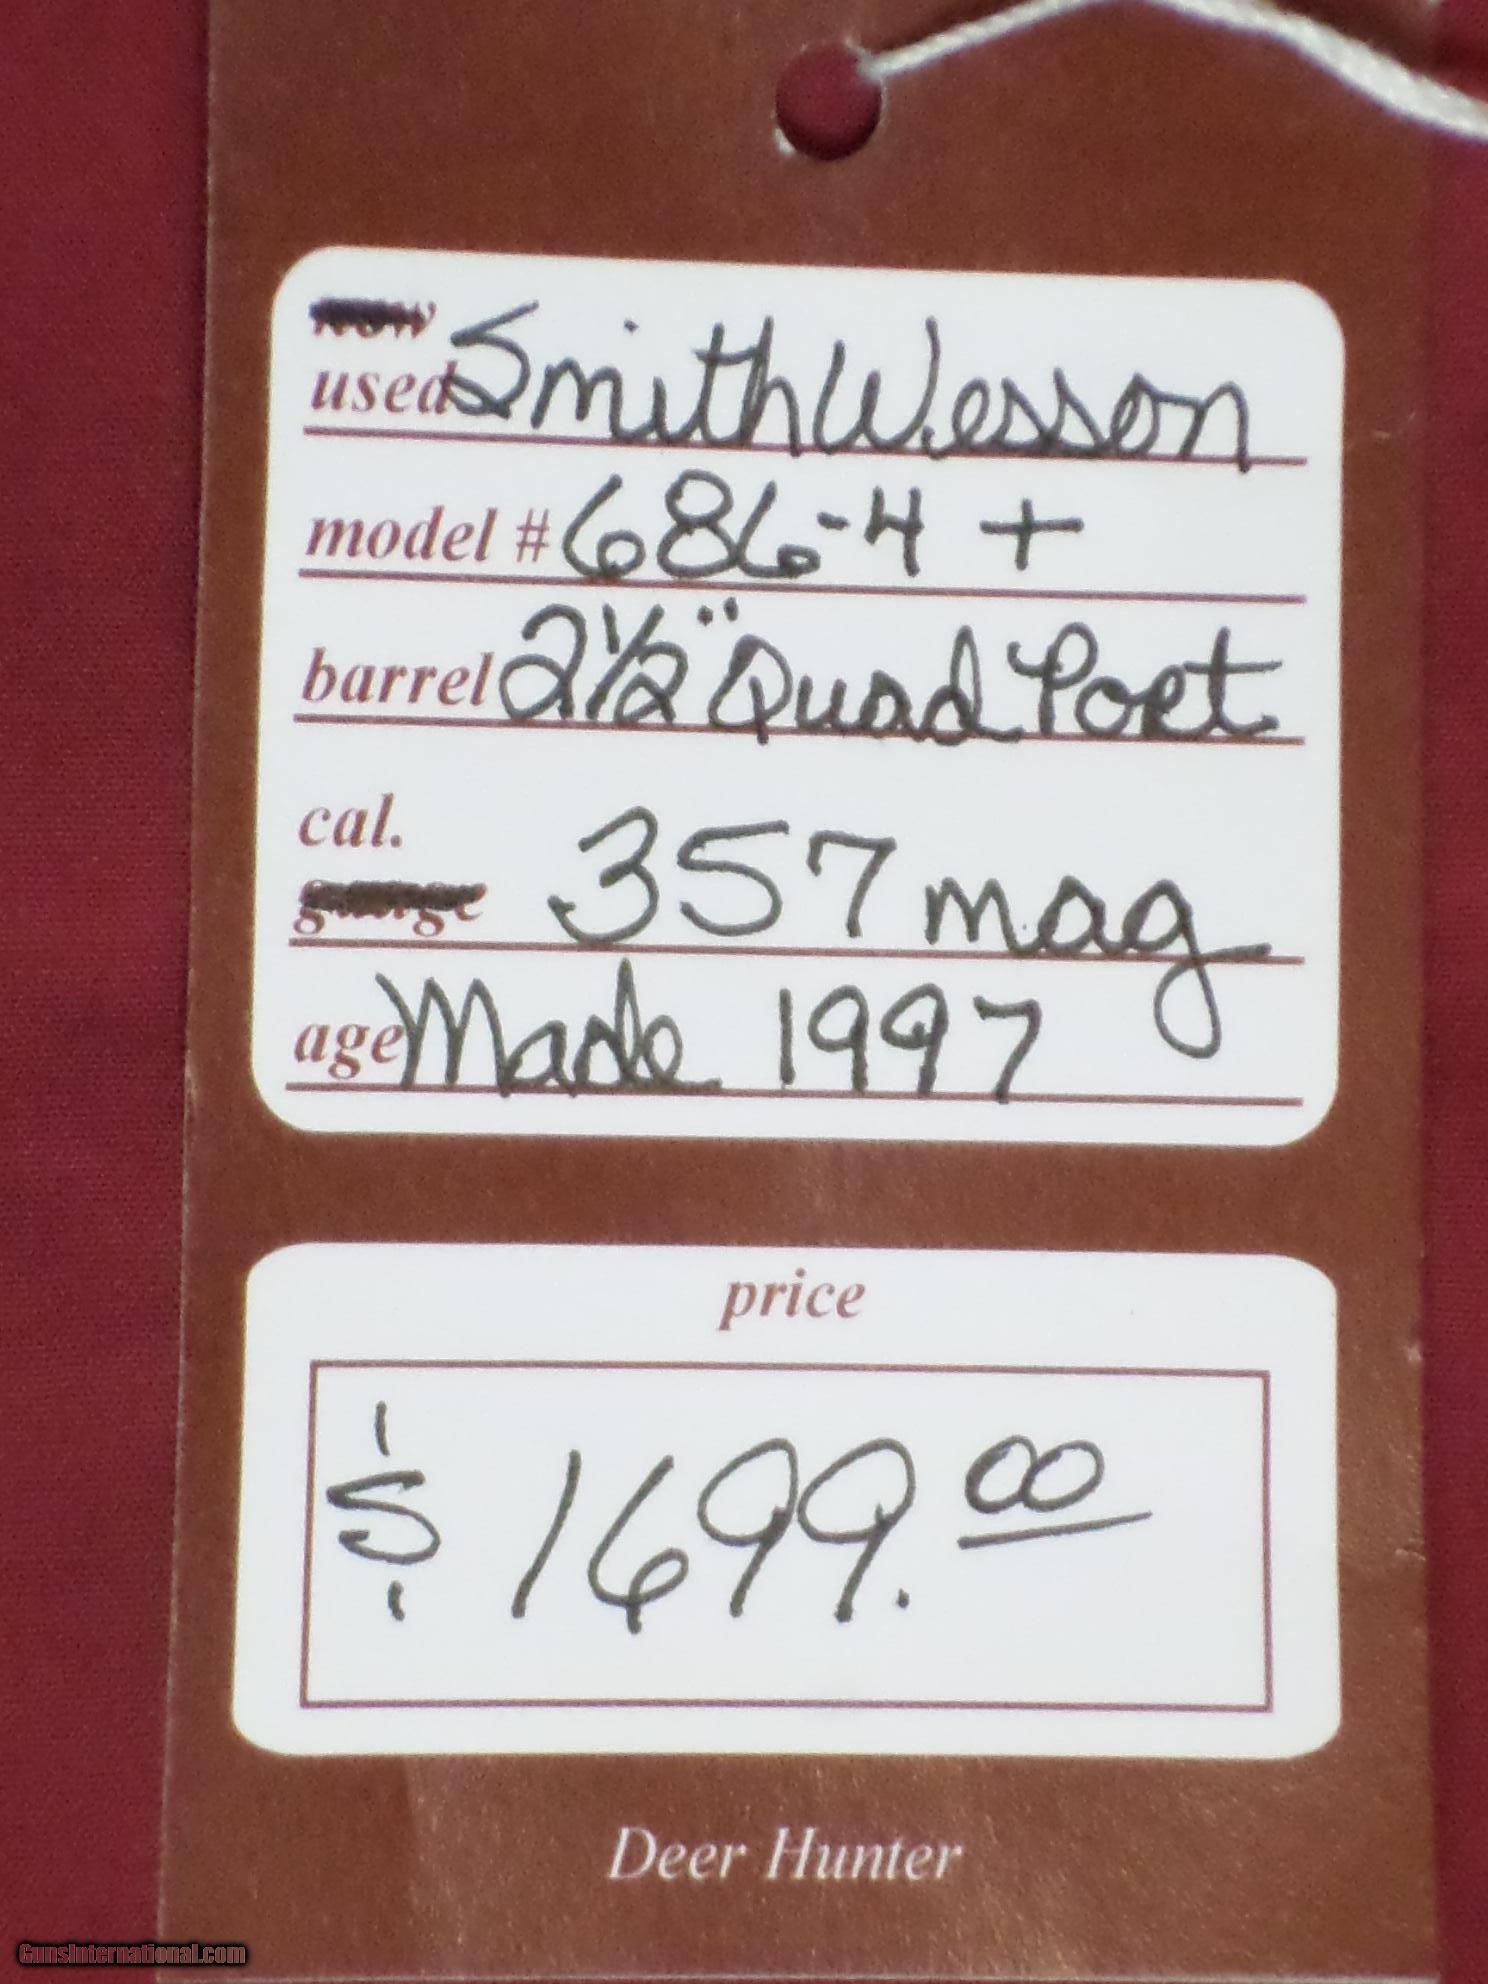 new
used Smith Wesson
model # 686-4 +
barrel 2 1/2" Quad Port
cal.
gauge 357 mag
age Made 1997
price
$ 1699.00
Deer Hunter
GunsInternational.com